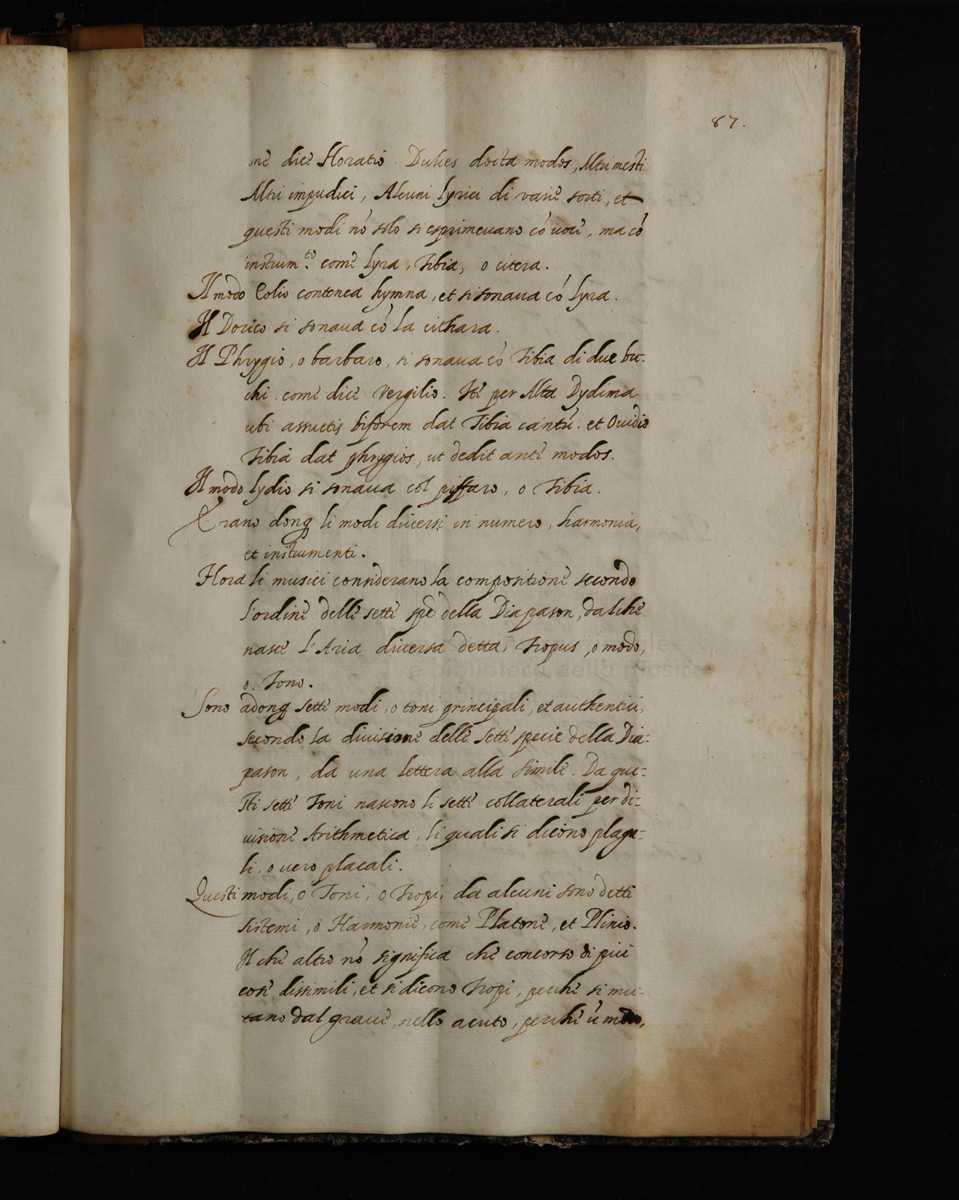 87.
me dice Horatio. Dulces docta modos, Altri mesti
Altri impudici, Alcuni lyrici di varie sorti, et
questi modi nõ solo si esprimevano cõ voce, ma cõ
instrum.to come lyra, Tibia, o citera.
Il modo Eolio contenea hymna, et si sonava cõ lyra.
Il Dorico si sonava cõ la cithara.
Il Phrygio, o barbaro, si sonava cõ Tibia di due bu-
chi come dice Vergilio. Ite per Alta Dydima
ubi assuetis biforem dat Tibia cantũ. et Ovidio
Tibia dat phrygios, ut dedit ante modos.
Il modo lydio si sonava col piffaro, o Tibia.
Erano donq li modi diversi in numero, harmonia,
et instrumenti.
Hora li musici considerano la compositione secondo
l'ordine delle sette spẽ della Diapason, dal che
nasce l'Aria diversa detta, Tropus, o modo,
o, Tono.
Sono adonq sette modi, o toni principali, et authentici,
secondo la divisione delle sette specie della Dia-
pason, da una lettera alla simile. Da que-
sti sette Toni nascono li sette collaterali per di-
visione Arithmetica, li quali si dicono plaga-
li, o vero placali.
Questi modi, o Toni, o Tropi, da alcuni sono detti
sistemi, o Harmonie, come Platone, et Plinio.
Il che altro nõ significa che concorso di piu
cose dissimili, et si dicono Tropi, perche si mu-
tano dal grave, nello acuto, perche ũ modo,